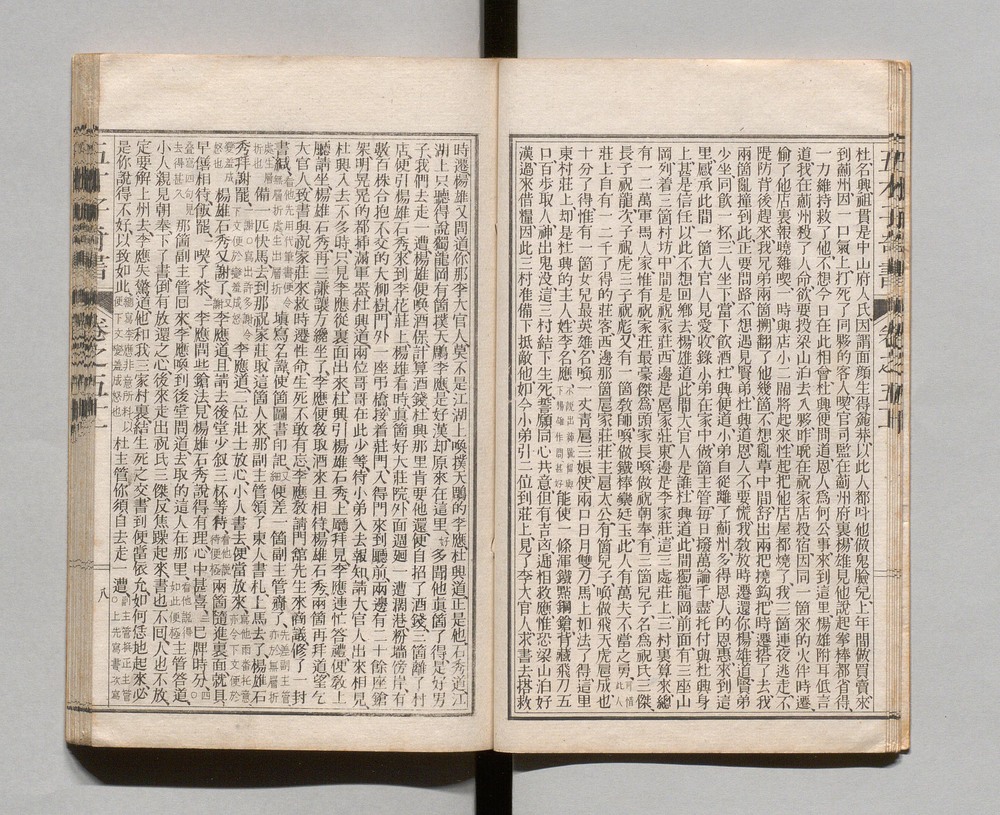 杜名興祖貫是中山府人氏因謂面顏生得麄莽以此人都呌他做鬼臉兒上年間做買賣來
到薊州因一口氣上打死了同夥的客人喫官司監在薊州府裏楊雄見他說起拳棒都省得
一力維持救了他不想今日在此相會杜興便問道恩人爲何公事來到這里楊雄附耳低言
道我在薊州殺了人命欲要投梁山泊去入夥昨晚在祝家店投宿因同一箇來的火伴時遷
偷了他店裏報曉雞喫一時與店小二閙將起來性起把他店屋都燒了我三箇連夜逃走不
隄防背後趕來我兄弟兩箇搠翻了他幾箇不想亂草中間舒出兩把撓鈎把時遷搭了去我
兩箇亂撞到此正要問路不想遇見賢弟杜興道恩人不要慌我敎放時遷還你楊雄道賢弟
少坐同飮一杯三人坐下當下飮酒杜興便道小弟自從離了薊州多得恩人的恩惠來到這
里感承此間一箇大官人見愛收錄小弟在家中做箇主管每日撥萬論千盡托付與杜興身
上甚是信任以此不想回鄉去楊雄道此間大官人是誰杜興道此間獨龍岡前面有三座山
岡列着三箇村坊中間是祝家莊西邊是扈家莊東邊是李家莊這三處莊上三村裏算來總
有一二萬軍馬人家惟有祝家莊最豪傑爲頭家長喚做祝朝奉有三箇兒子名爲祝氏三傑
長子祝龍次子祝虎三子祝彪又有一箇敎師喚做鐵棒欒廷玉此人有萬夫不當之勇
莊上自有一二千了得的莊客西邊那箇扈家莊莊主扈太公有箇兒子喚做飛天虎扈成也
十分了得惟有一箇女兒最英雄名喚一丈靑扈三娘使兩口日月雙刀馬上如法了得這里
東村莊上却是杜興的主人姓李名應能使一條渾鐵點鋼鎗背藏飛刀五
口百步取人神出鬼没這三村結下生死誓願同心共意但有吉凶逓相救應惟恐梁山泊好
漢過來借糧因此三村准備下抵敵他如今小弟引二位到莊上見了李大官人求書去搭救
時遷楊雄又問道你那李大官人莫不是江湖上喚撲天鵰的李應杜興道正是他石秀道江
湖上只聽得說獨龍岡有箇撲天鵰李應是好漢却原來在這里多聞他眞箇了得是好男
子我們去走一遭楊雄便喚酒保計算酒錢杜興那里肯要他還便自招了酒錢三箇離了村
店便引楊雄石秀來到李家莊上楊雄看時眞箇好大莊院外面週廻一遭濶港粉墻傍岸有
數百株合抱不交的大柳樹門外一座弔橋接着莊門入得門來到廳前兩邊有二十餘座鎗
架明晃晃的都插滿軍器杜興道兩位哥哥在此少等待小弟入去報知請大官人出來相見
杜興入去不多時只見李應從裏面出來杜興引楊雄石秀上廳拜見李應連忙答禮便敎上
廳請坐楊雄石秀再三謙讓方纔坐了李應便敎取酒來且相待楊雄石秀兩箇再拜道望乞
大官人致書與祝家莊來救時遷性命生死不敢有忘李應敎請門館先生來商議修了一封
書緘塡寫名諱使箇圖書印記便差一箇副主管齎了
備一匹快馬去到那祝家莊取這箇人來那副主管領了東人書札上馬去了楊雄石
秀拜謝罷李應道二位壯士放心小人書去便當放來
楊雄石秀又謝了李應道且請去後堂少叙三杯等待兩箇隨進裏面就具
早膳相待飯罷喫了茶李應問些鎗法見楊雄石秀說得有理心中甚喜巳牌時分
那箇副主管囘來李應喚到後堂問道去取的這人在那里主管答道
小人親見朝奉下了書倒有放還之心後來走出祝氏三傑反焦躁起來書也不囘人也不放
定要解上州去李應失驚道他和我三家村裏結生死之交書到便當依允如何恁地起來必
是你說得不好以致如此杜主管你須自去走一遭
八